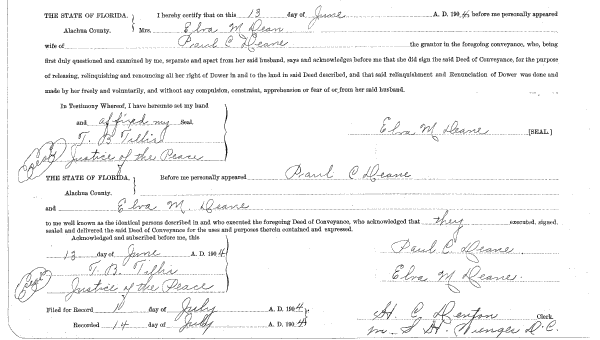 THE STATE OF FLORIDA. I hereby certify that on this 13 day of June A. D. 1904, before me personally appeared
Alachua County. Mrs. Elva M Dean
wife of Paul C Deane the grantor in the foregoing conveyance, who, being
first duly questioned and examined by me, separate and apart from her said husband, says and acknowledges before me that she did sign the said Deed of Conveyance, for the purpose
of releasing, relinquishing and renouncing all her right of Dower in and to the land in said Deed described, and that said relinquishment and Renunciation of Dower was done and
made by her freely and voluntarily, and without any compulsion, constraint, apprehension or fear of or from her said husband.
In Testimony Whereof, I have hereunto set my hand
and affixed my Seal.
T. B Tillis Elva M Deane [SEAL]
Seal Justice of the Peace
THE STATE OF FLORIDA. Before me personally appeared Paul C Deane
Alachua County.
and Elva M. Deane
to me well known as the identical persons described in and who executed the foregoing Deed of Conveyance, who acknowledged that they executed, signed,
sealed and delivered the said Deed of Conveyance for the uses and purposes therein contained and expressed.
Acknowledged and subscribed before me, this
13 day of June A. D. 1904 Paul C Deane
T. B. Tillis Elva M Deane.
Seal Justice of the Peace
Filed for Record 11 day of July A. D. 1904 H. C Denton Clerk.
Recorded 14 day of July A. D. 1904 D. C.